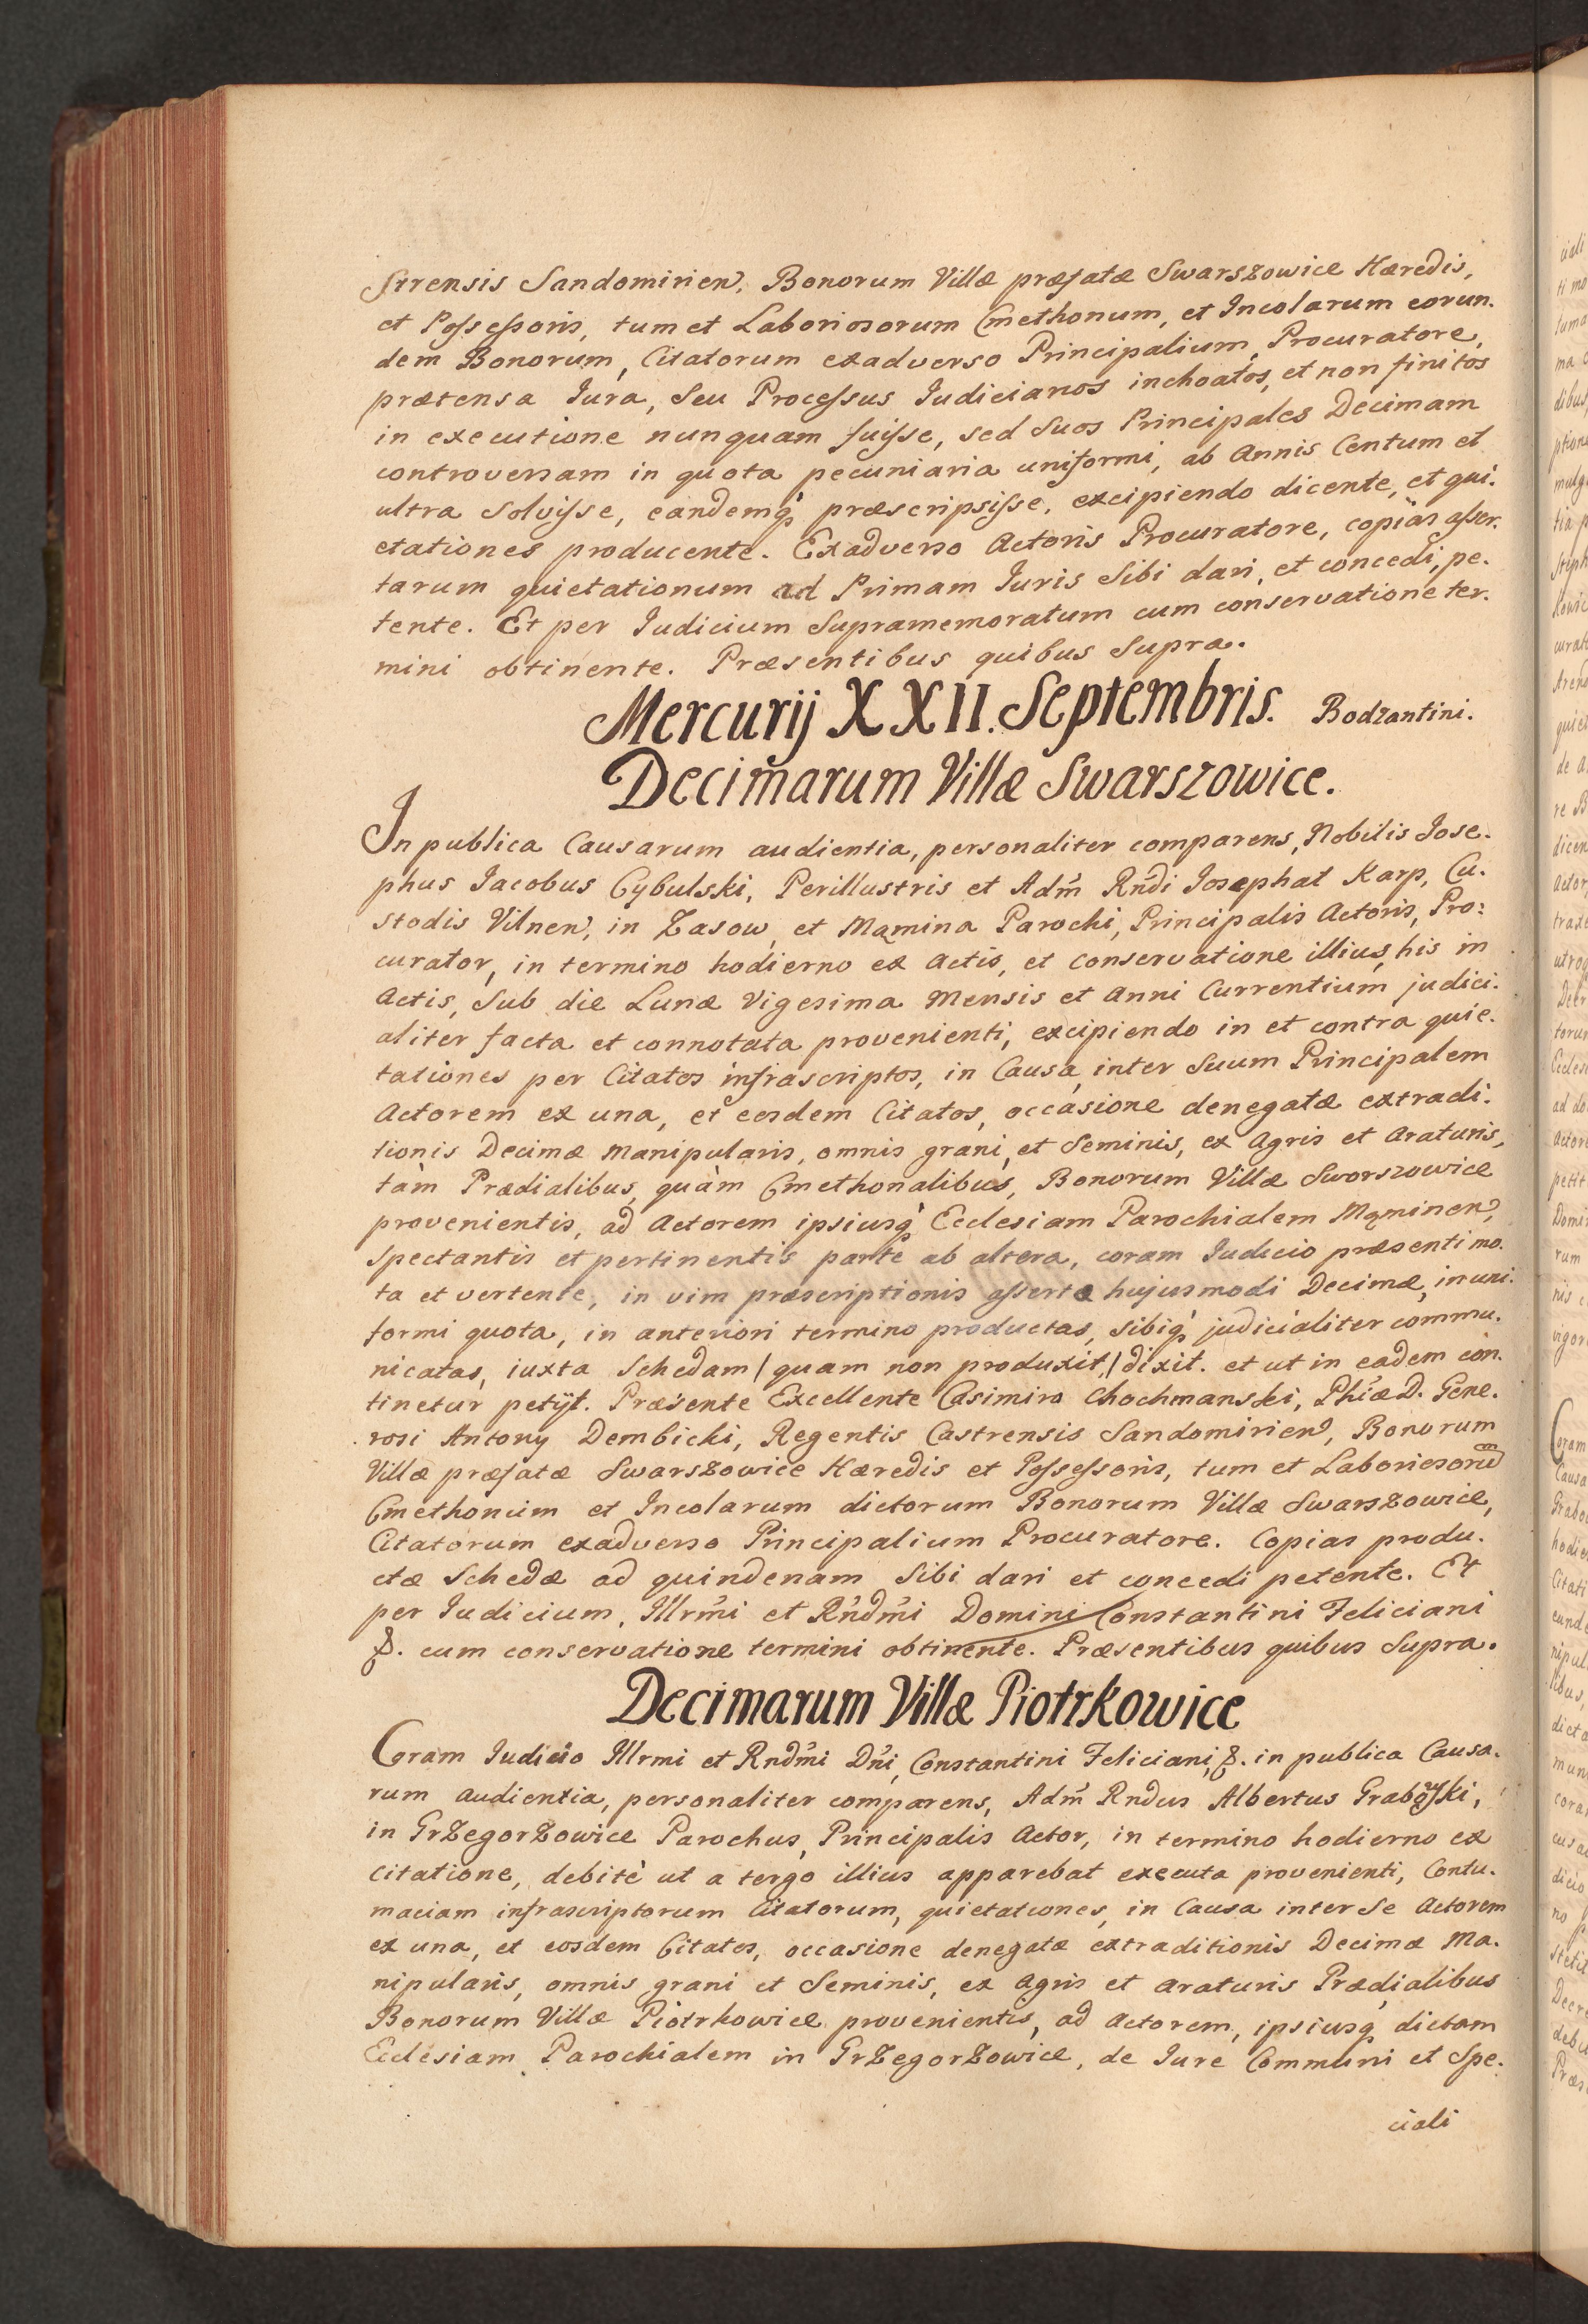 strensis Sandomirien, Bonorum Villæ præfatæ Swarszowice Hæredis,
et Possessoris, tum et Laboriosorum Cmethonum, et Incolarum eorun-
dem Bonorum, Citatorum exadverso Principalium Procuratore,
prætensa Iura, Seu Processus Iudicianos inchoatos, et non finitos
in executione nunquam fuisse, sed Suos Principales Decimam
controversam in quota pecuniaria uniformi, ab Annis Centum et
ultra Solvisse, eandemq́ præscripsisse, excipiendo dicente, et qui-
etationes producente. Exadverso Actoris Procuratore, copias asser-
tarum quietationum ad Primam Iuris Sibi dari, et concedi, pe-
tente. Et per Iudicium Supramemoratum cum conservatione ter-
mini obtinente. Præsentibus quibus Supra.
Mercurij XXII. Septembris. Bodzantini.
Decimarum Villæ Swarszowice.
In publica Causarum audientia, personaliter comparens, Nobilis Jose-
phus Jacobus Cybulski, Perillustris et Adm̃ Rñdi Josephat Karp, Cu-
stodis Vilnen, in Zasow, et Mąmina Parochi, Principalis Actoris, Pro-
curator, in termino hodierno ex Actis, et conservatione illius, his in
Actis, Sub die Lunæ Vigesima Mensis et Anni Currentium judici-
aliter facta et connotata provenienti, excipiendo in et contra quie-
tationes per Citatos infrascriptos, in Causa, inter Suum Principalem
Actorem ex una, et eosdem Citatos, occasione denegatæ extradi-
tionis Decimæ Manipularis, omnis grani, et Seminis, ex Agris et Araturis,
tàm Prædialibus, quàm Cmethonalibus, Bonorum Villæ Sworszowice
provenientis, ad Actorem ipsiusq́ Ecclesiam Parochialem Mąminen,
spectantis et pertinentis parte ab altera, coram Iudicio præsenti mo-
ta et vertente, in vim præscriptionis assertæ hujusmodi Decimæ, in uni-
formi quota, in anteriori termino productas, Sibiq́ judicialiter commu-
nicatas, iuxta Schedam /quam non produxit/ dixit. et ut in eadem con-
tinetur petijt. Præsente Excellente Casimiro Chochmanski, Phiæ D. Gene-
rosi Antony Dembicki, Regentis Castrensis Sandomirien, Bonorum
Villæ præfatæ Swarszowice Hæredis et Possessoris, tum et Laboriosorũ
Cmethonum et Incolarum dictorum Bonorum Villæ Swarszowice,
Citatorum exadverso Principalium Procuratore. Copias produ-
ctæ Schedæ ad quindenam Sibi dari et concedi petente. Et
per Iudicium, Illrmi et Rñdmi Domini Constantini Feliciani
&. cum conservatione termini obtinente. Præsentibus quibus Supra.
Decimarum Villæ Piotrkowice
Coram Iudicio Illrmi et Rndmi Dñi, Constantini Feliciani, &. in publica Causa-
rum audientia, personaliter comparens, Adm̃ Rndus Albertus Grabowski,
in Grzegorzowice Parochus, Principalis Actor, in termino hodierno ex
Citatione, debitè ut a tergo illius apparebat executa provenienti, Contu-
maciam infrascriptorum Citatorum, quietationes, in Causa inter Se Actorem
ex una, et eosdem Citatos, occasione denegatæ extraditionis Decimæ Ma-
nipularis, omnis grani et Seminis, ex Agris et Araturis Prædialibus
Bonorum Villæ Piotrkowice provenientis, ad Actorem, ipsiusq́ dictam
Ecclesiam Parochialem in Grzegorzowice, de Iure Communi et Spe-
ciali